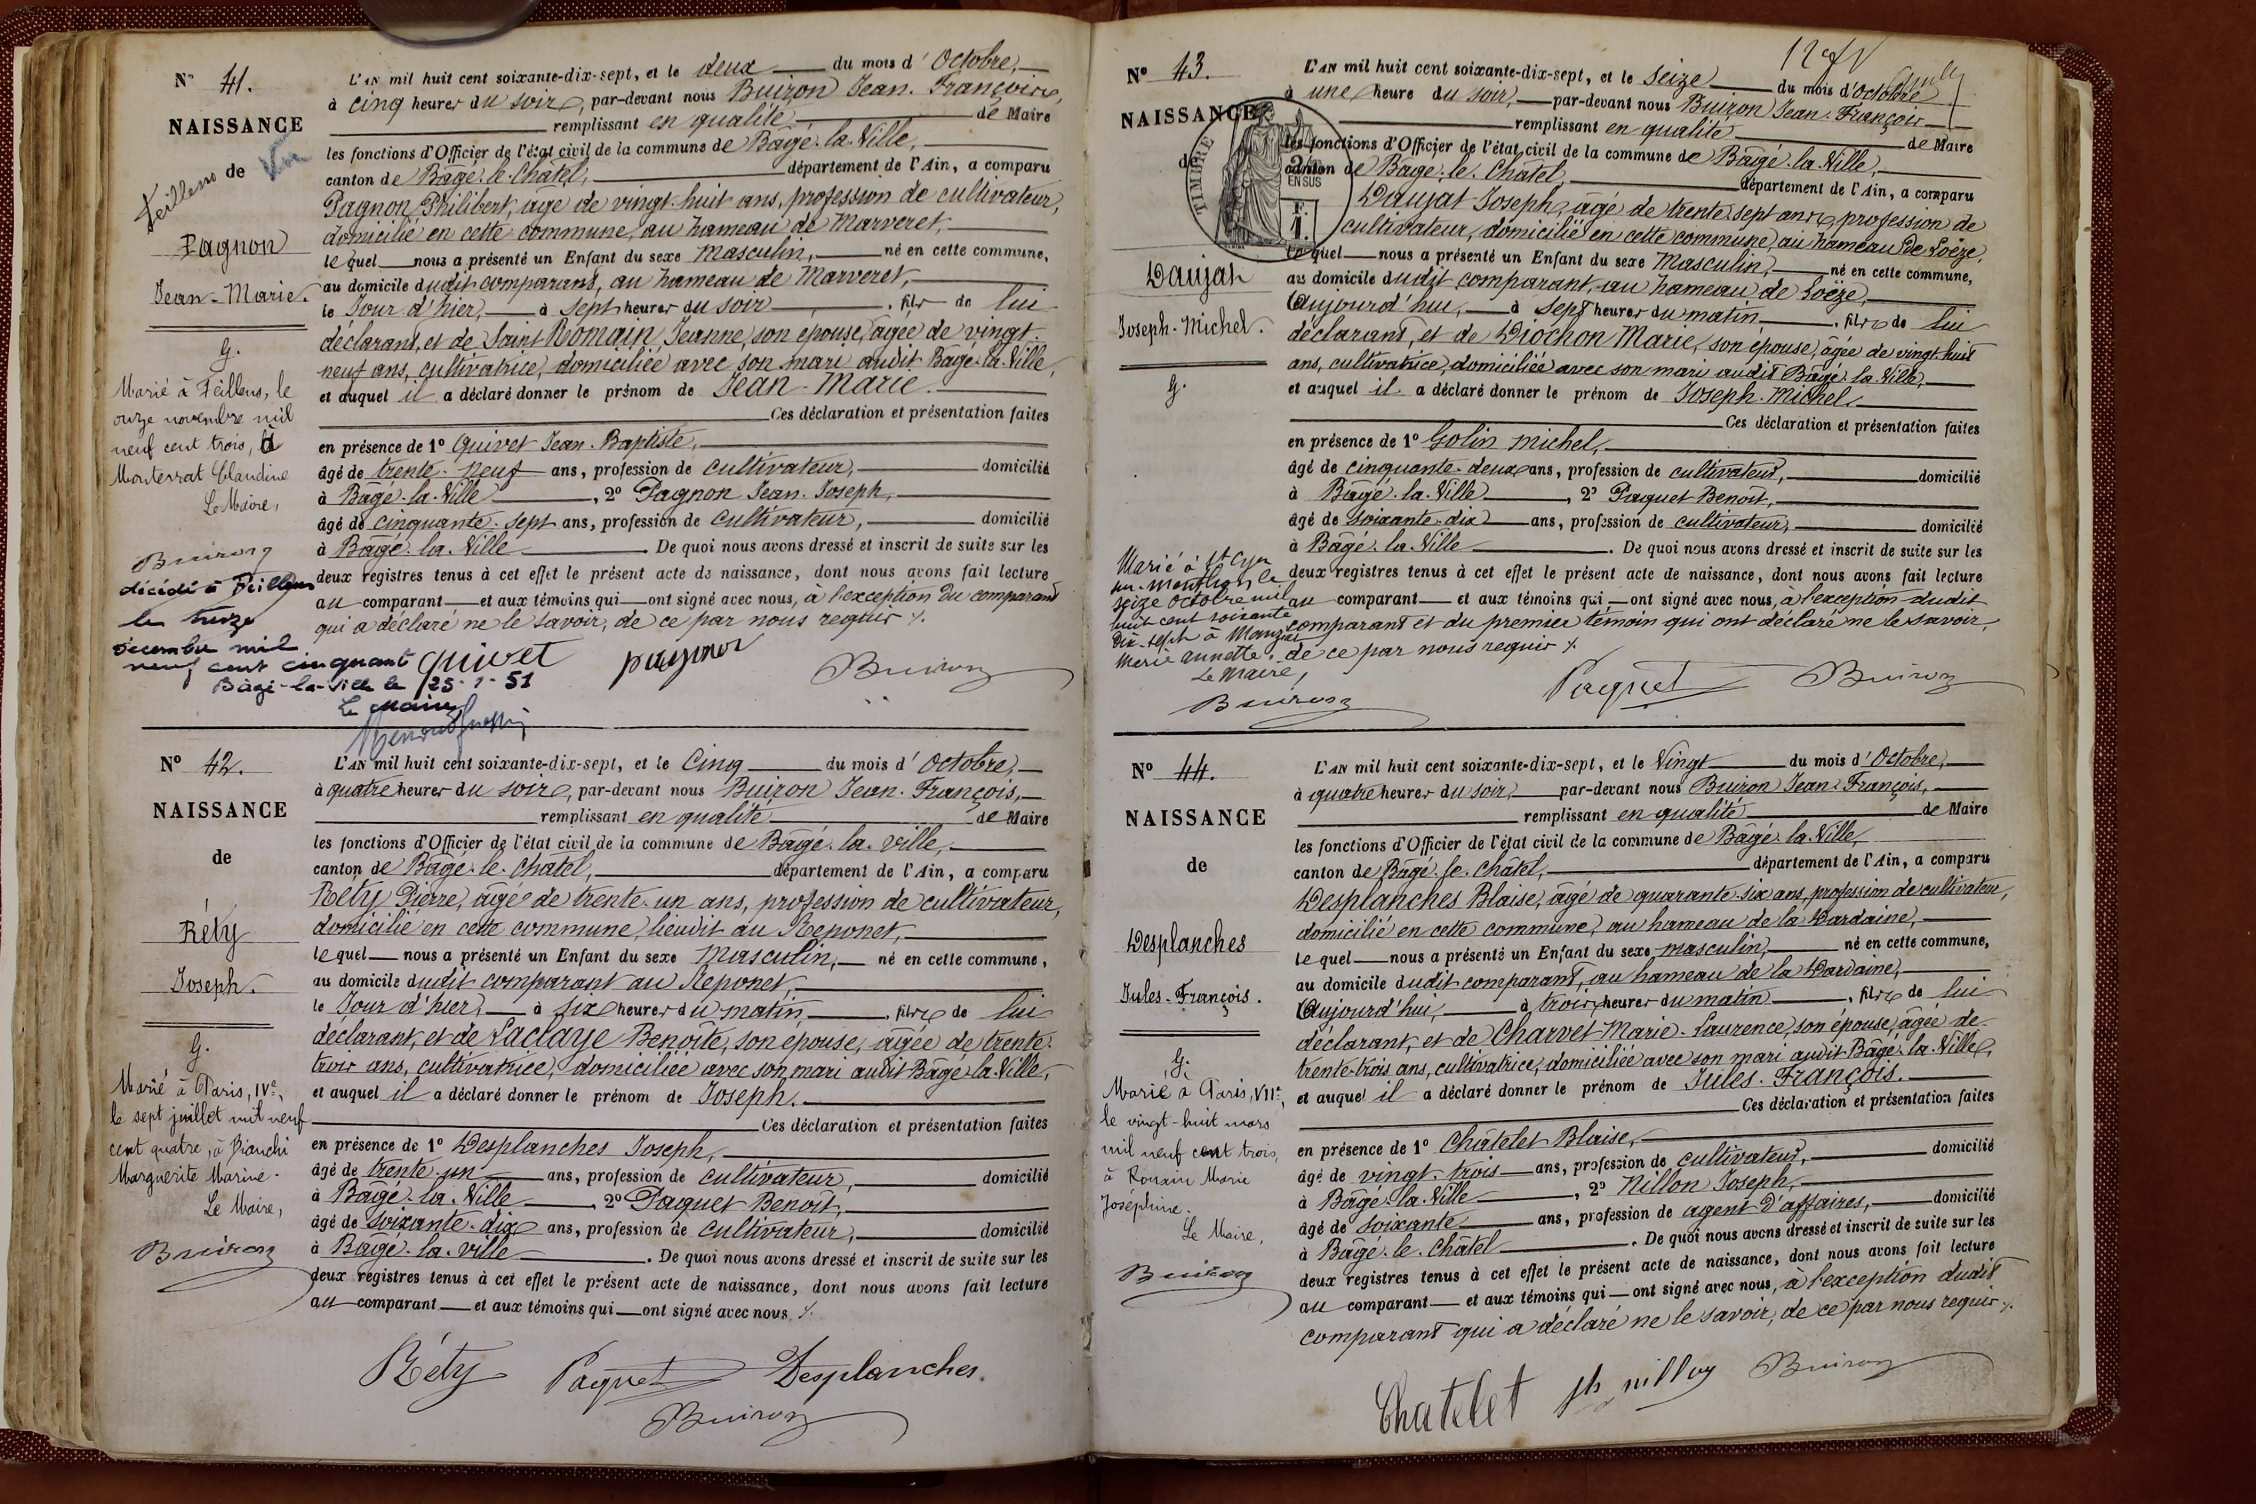 N° 41.
NAISSANCE
de
Feillens
Pagnon
Jean-Marie.
G.
Marié à Feillens, le
onze novembre mil
neuf cent trois, à
Monterrat Claudine
Le Maire,
Buiron
décédé à Feillens
le treize
décembre mil
neuf cent cinquant
Bâgé-la-Ville le 25-1-51
Le Maire
L'AN mil huit cent soixante-dix-sept, et le deux du mois d'Octobre,
à cinq heures du soir, par-devant nous Buiron Jean-François,
remplissant en qualité de Maire
les fonctions d'Officier de l'état civil de la commune de Bâgé-la-Ville,
canton de Bâgé-le-Châtel, département de l'Ain, a comparu
Pagnon Philibert, âgé de vingt-huit ans, profession de cultivateur,
domicilié en cette commune, au hameau de Marveret,
lequel nous a présenté un Enfant du sexe Masculin, né en cette commune,
au domicile dudit comparant, au hameau de Marveret,
le Jour d'hier, à sept heures du soir, fils de lui
déclarant, et de Saint Romain, Jeanne, son épouse, âgée de vingt-
neuf ans, cultivatrice, domiciliée avec son mari audit Bâgé-la-Ville,
et auquel il a déclaré donner le prénom de Jean-Marie.
Ces déclaration et présentation faites
en présence de 1° Quivet Jean-Baptiste,
âgé de trente-neuf ans, profession de cultivateur, domicilié
à Bâgé-la-Ville, 2° Pagnon Jean-Joseph,
âgé de cinquante-sept ans, profession de cultivateur, domicilié
à Bâgé-la-Ville. De quoi nous avons dressé et inscrit de suite sur les
deux registres tenus à cet effet le présent acte de naissance, dont nous avons fait lecture
au comparant et aux témoins qui ont signé avec nous, à l'exception du comparant
qui a déclaré ne le savoir, de ce par nous requis ⁒
Quivet pagnon Buiron
N° 42.
NAISSANCE
de
Réty
Joseph.
G.
Marié à Paris, IVe,
le sept juillet mil neuf
cent quatre, à Bianchi
Marguerite Marine.
Le Maire,
Buiron
L'AN mil huit cent soixante-dix-sept, et le Cinq du mois d'Octobre,
à quatre heures du soir, par-devant nous Buiron Jean-François,
remplissant en qualité de Maire
les fonctions d'Officier de l'état civil de la commune de Bâgé-la-Ville,
canton de Bâgé-le-Châtel, département de l'Ain, a comparu
Réty Pierre, âgé de trente-un ans, profession de cultivateur,
domicilié en cette commune, lieudit au Reponet,
lequel nous a présenté un Enfant du sexe Masculin, né en cette commune,
au domicile dudit comparant au Reponet,
le Jour d'hier, à six heures du matin, fils de lui
déclarant, et de Laclaye Benoîte, son épouse, âgée de trente-
trois ans, cultivatrice, domiciliée avec son mari audit Bâgé-la-Ville,
et auquel il a déclaré donner le prénom de Joseph.
Ces déclaration et présentation faites
en présence de 1° Desplanches Joseph,
âgé de trente-un ans, profession de cultivateur, domicilié
à Bâgé-la-Ville, 2° Paquet Benoît,
âgé de soixante-dix ans, profession de cultivateur, domicilié
à Bâgé-la-Ville. De quoi nous avons dressé et inscrit de suite sur les
deux registres tenus à cet effet le présent acte de naissance, dont nous avons fait lecture
au comparant et aux témoins qui ont signé avec nous ⁒
Réty Paquet Desplanches.
Buiron
N° 43.
NAISSANCE
de
TIMBRE
EN SUS
Daujat
Joseph-Michel.
G.
Marié à St Cyr
sur-Menthon le
seize octobre mil
huit cent soixante
dix-sept à
Marie Annette.
Le Maire,
Buiron
L'AN mil huit cent soixante-dix-sept, et le seize du mois d'Octobre
à une heure du soir, par-devant nous Buiron Jean-François
remplissant en qualité de Maire
les fonctions d'Officier de l'état civil de la commune de Bâgé-la-Ville,
canton de Bâgé-le-Châtel, département de l'Ain, a comparu
Daujat Joseph, âgé de trente-sept ans, profession de
cultivateur, domicilié en cette commune, au hameau de Loëze,
lequel nous a présenté un Enfant du sexe Masculin, né en cette commune,
au domicile dudit comparant, au hameau de Loëze,
Aujourd'hui, à sept heures du matin, fils de lui
déclarant, et de Diochon Marie, son épouse, âgée de vingt-huit
ans, cultivatrice, domiciliée avec son mari audit Bâgé-la-Ville,
et auquel il a déclaré donner le prénom de Joseph-Michel.
Ces déclaration et présentation faites
en présence de 1° Golin Michel,
âgé de cinquante-deux ans, profession de cultivateur, domicilié
à Bâgé-la-Ville, 2° Paquet Benoît,
âgé de soixante-dix ans, profession de cultivateur, domicilié
à Bâgé-la-Ville. De quoi nous avons dressé et inscrit de suite sur les
deux registres tenus à cet effet le présent acte de naissance, dont nous avons fait lecture
au comparant et aux témoins qui ont signé avec nous, à l'exception dudit
comparant et du premier témoin qui ont déclaré ne le savoir,
de ce par nous requis ⁒
Paquet Buiron
N° 44.
NAISSANCE
de
Desplanches
Jules-François.
G.
Marié à Paris, VIIe,
le vingt-huit mars
mil neuf cent trois,
à Romain Marie
Joséphine.
Le Maire,
Buiron
L'AN mil huit cent soixante-dix-sept, et le Vingt du mois d'Octobre,
à quatre heures du soir, par-devant nous Buiron Jean-François,
remplissant en qualité de Maire
les fonctions d'Officier de l'état civil de la commune de Bâgé-la-Ville,
canton de Bâgé-le-Châtel, département de l'Ain, a comparu
Desplanches Blaise, âgé de quarante-six ans, profession de cultivateur,
domicilié en cette commune, au hameau de la Dardaine,
lequel nous a présenté un Enfant du sexe masculin, né en cette commune,
au domicile dudit comparant, au hameau de la Dardaine,
Aujourd'hui, à trois heures du matin, fils de lui
déclarant, et de Charvet Marie-Laurence, son épouse, âgée de
trente-trois ans, cultivatrice, domiciliée avec son mari audit Bâgé-la-Ville,
et auquel il a déclaré donner le prénom de Jules-François.
Ces déclaration et présentation faites
en présence de 1° Châtelet Blaise,
âgé de vingt-trois ans, profession de cultivateur, domicilié
à Bâgé-la-Ville, 2° Nillon Joseph,
âgé de soixante ans, profession de agent d'affaires, domicilié
à Bâgé-le-Châtel. De quoi nous avons dressé et inscrit de suite sur les
deux registres tenus à cet effet le présent acte de naissance, dont nous avons fait lecture
au comparant et aux témoins qui ont signé avec nous, à l'exception dudit
comparant qui a déclaré ne le savoir, de ce par nous requis ⁒
Chatelet Jh nillon Buiron